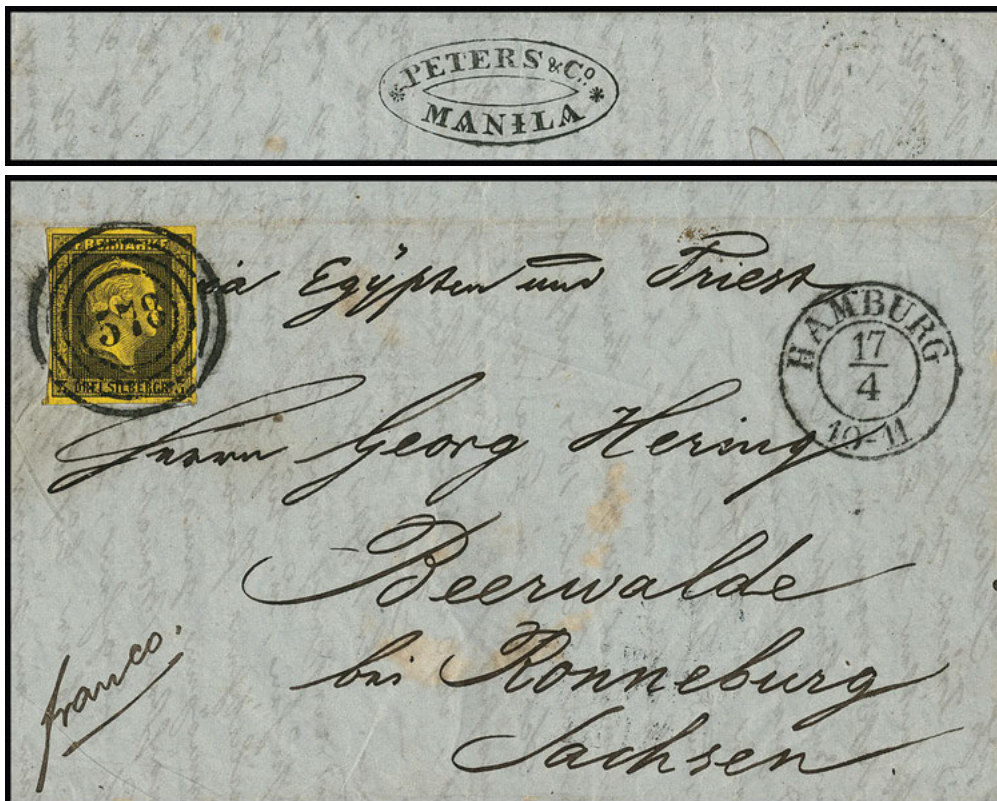 PETERS & Cº
MANILA
FREIMARKE
578
DREI SILBERGR.
via Egÿpten und Triest
HAMBURG
17
4
10-11
Herrn Georg Hering
Beerwalde
bei Ronneburg
Sachsen.
franco.